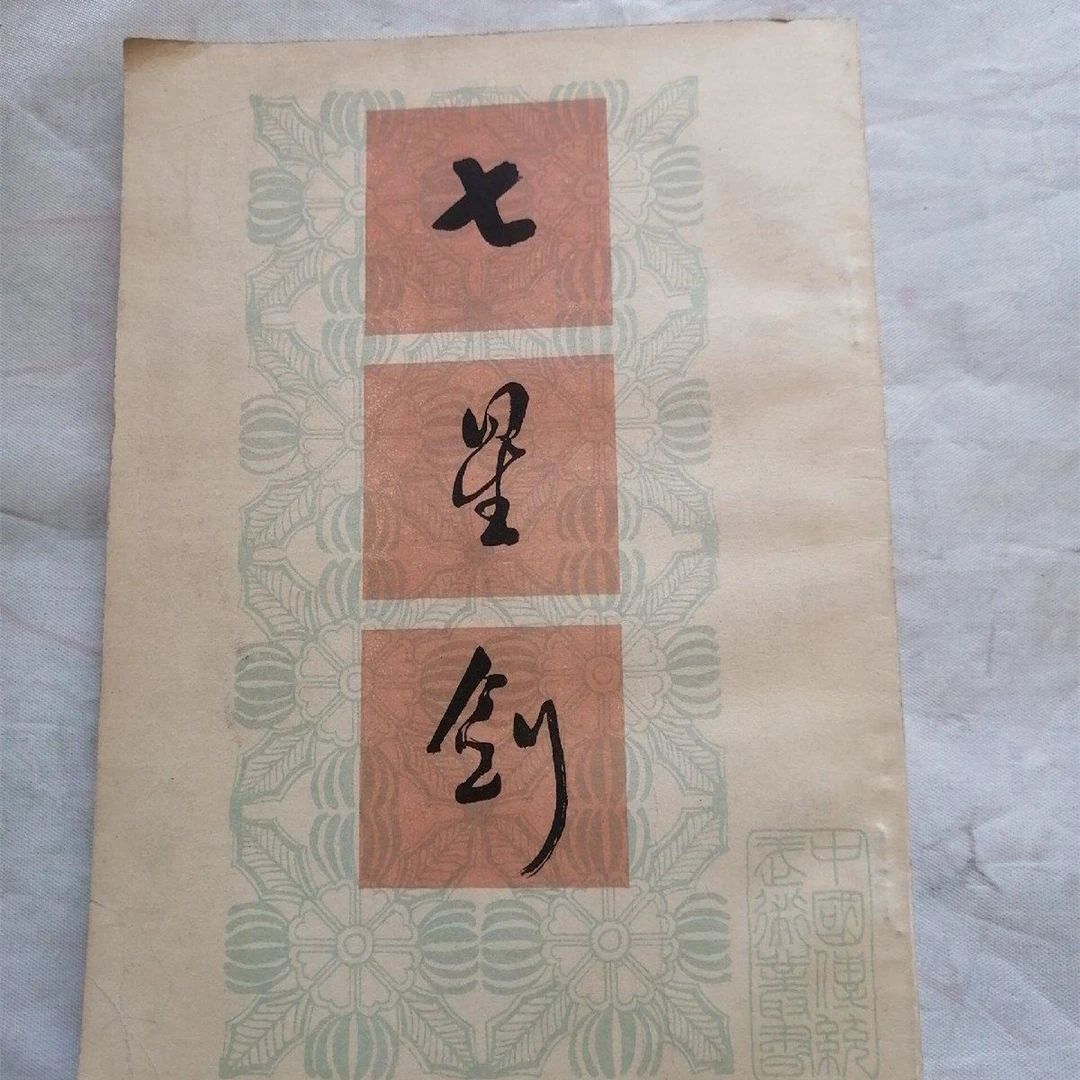 七星剑
中國傳統
武術叢書